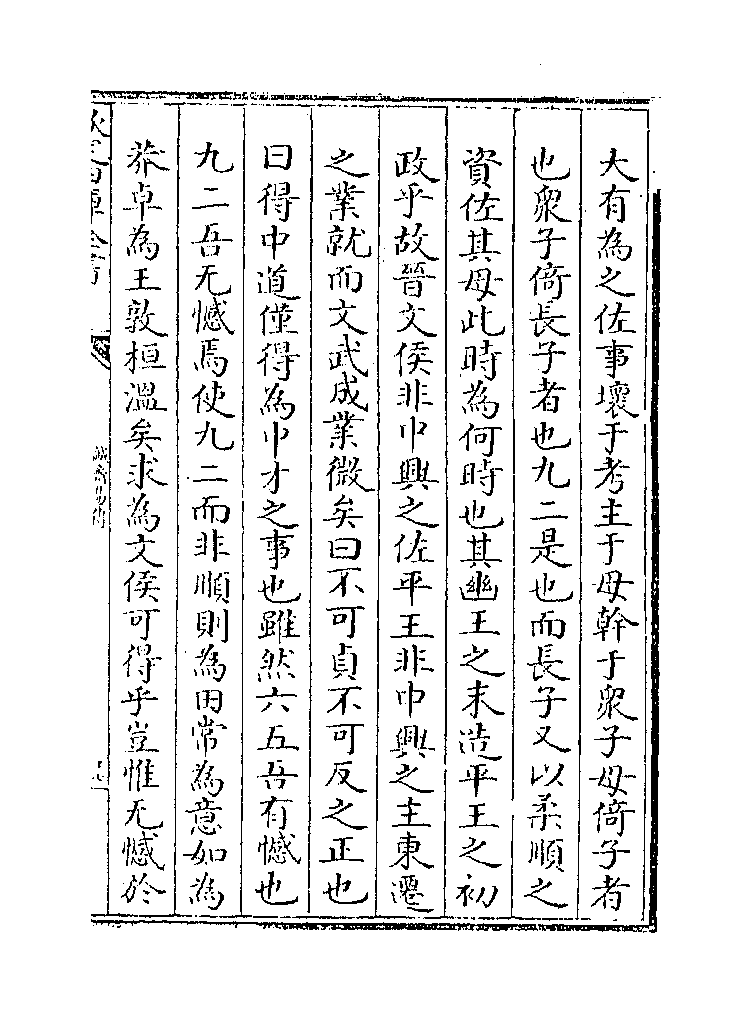 大有為之佐事壞于考主于母幹于衆子母倚子者
也衆子倚長子者也九二是也而長子又以柔順之
資佐其母此時為何時也其幽王之末造平王之初
政乎故晉文侯非中興之佐平王非中興之主東遷
之業就而文武成業微矣曰不可貞不可反之正也
曰得中道僅得為中才之事也雖然六五吾有憾也
九二吾无憾焉使九二而非順則為田常為意如為
莽卓為王敦桓溫矣求為文侯可得乎豈惟无憾於
欽定四庫全書
誠齋易傳